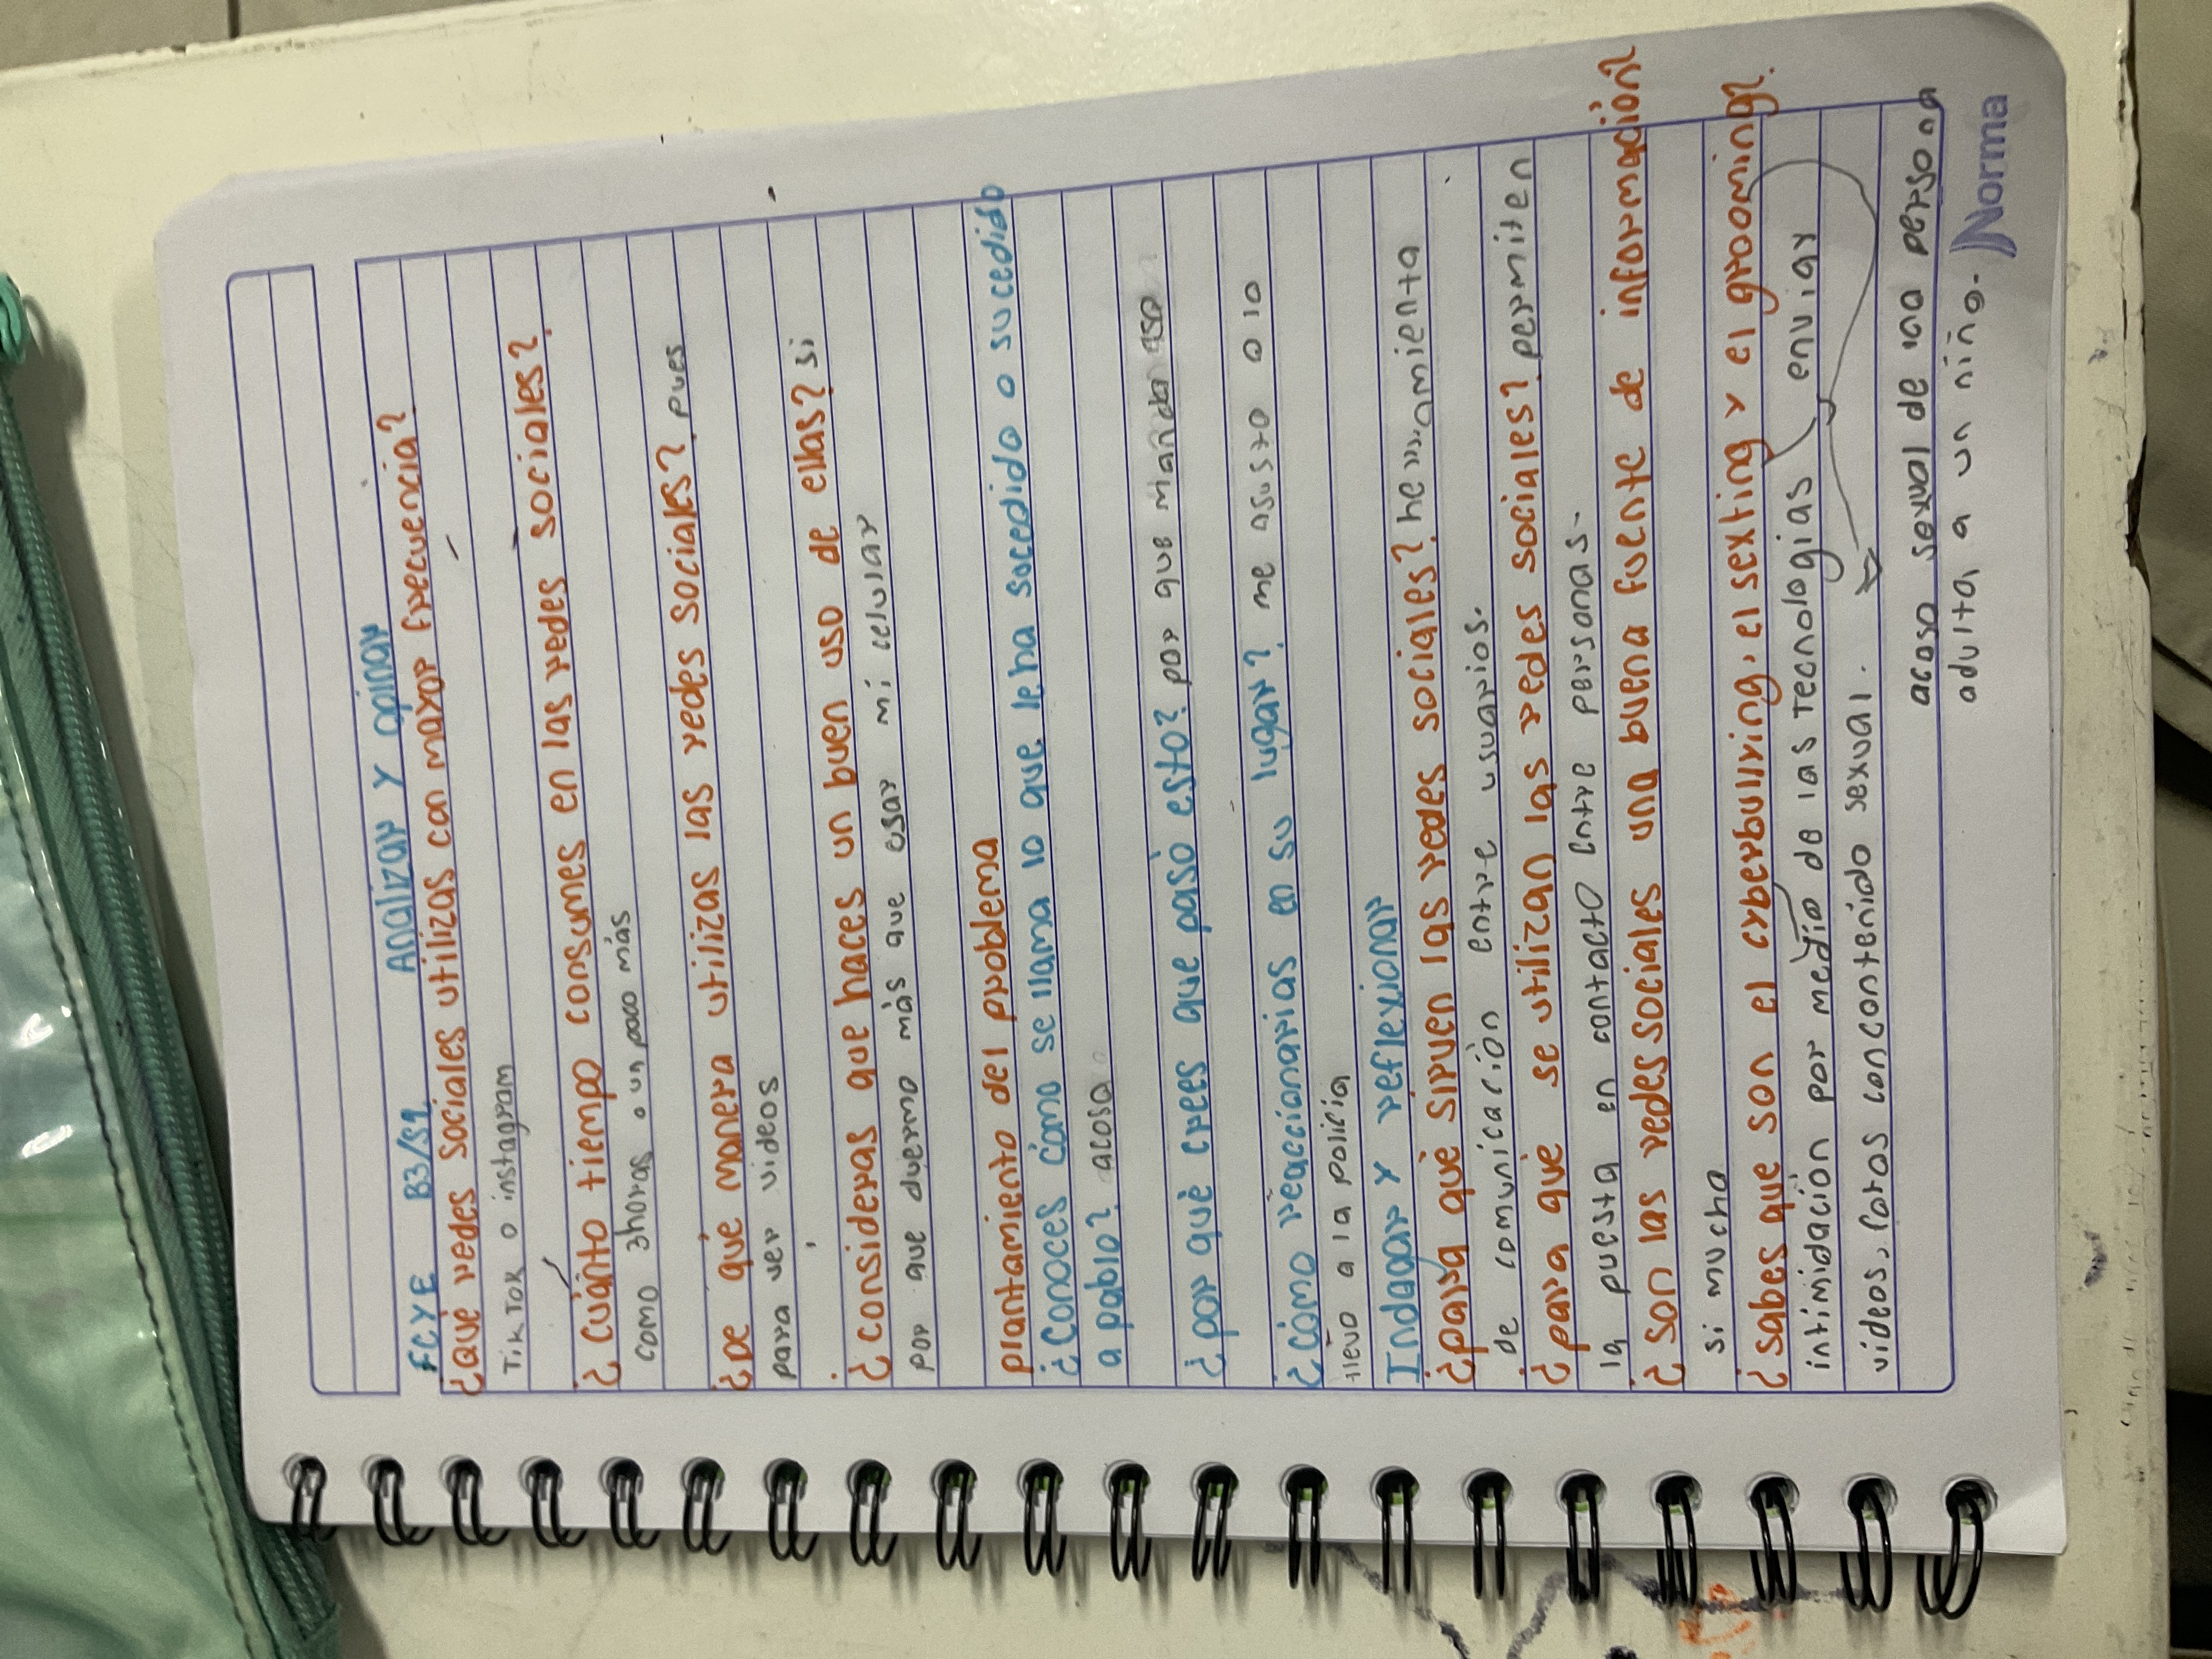 FCYE B3/S1 Analizar y opinar
¿Qué redes sociales utilizas con mayor frecuencia?
TikTok o instagram
¿Cuánto tiempo consumes en las redes sociales?
como 3horas o un poco más
¿De qué manera utilizas las redes sociales? pues
para ver videos
¿consideras que haces un buen uso de ellas? si
por que duermo más que usar mi celular
plantamiento del problema
¿Conoces cómo se llama lo que le ha sucedido o sucedido
a pablo? acoso
¿por qué crees que pasó esto? por que manda eso
¿cómo reaccionarias en su lugar? me asusto o lo
llevo a la policia
Indagar y reflexionar
¿para qué sirven las redes sociales? herramienta
de comunicación entre usuarios.
¿para que se utilizan las redes sociales? permiten
la puesta en contacto entre personas.
¿son las redes sociales una buena fuente de información?
si mucho
¿sabes que son el cyberbullying, el sexting y el grooming?
intimidación por medio de las Tecnologias enviar
videos, fotos con contenido sexual.
acoso sexual de una persona
adulta a un niño.
Norma